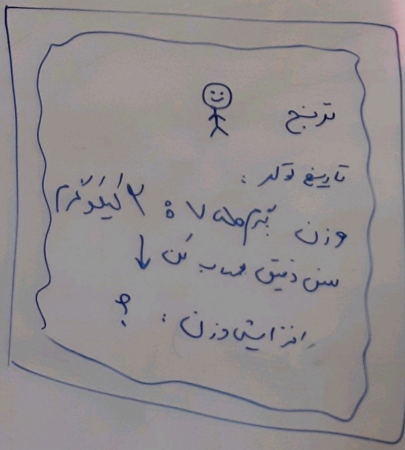 ترنج
تاریخ تولد :
وزن ۷ : ۲ کیلوگرم
سن دقیق حساب کن ↓
افزایش وزن : ؟